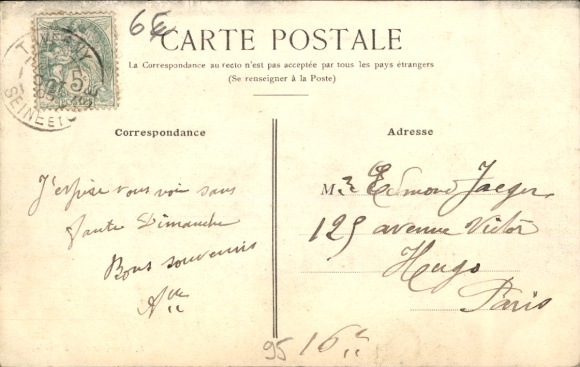 6€
CARTE POSTALE
La Correspondance au recto n'est pas acceptée par tous les pays étrangers
(Se renseigner à la Poste)
Correspondance
J'espère vous voir sans
faute Dimanche
Bons souvenirs
Adresse
M. Edmond Jaeger
125 avenue Victor
Hugo
Paris
16e
95
5
SEINE ET